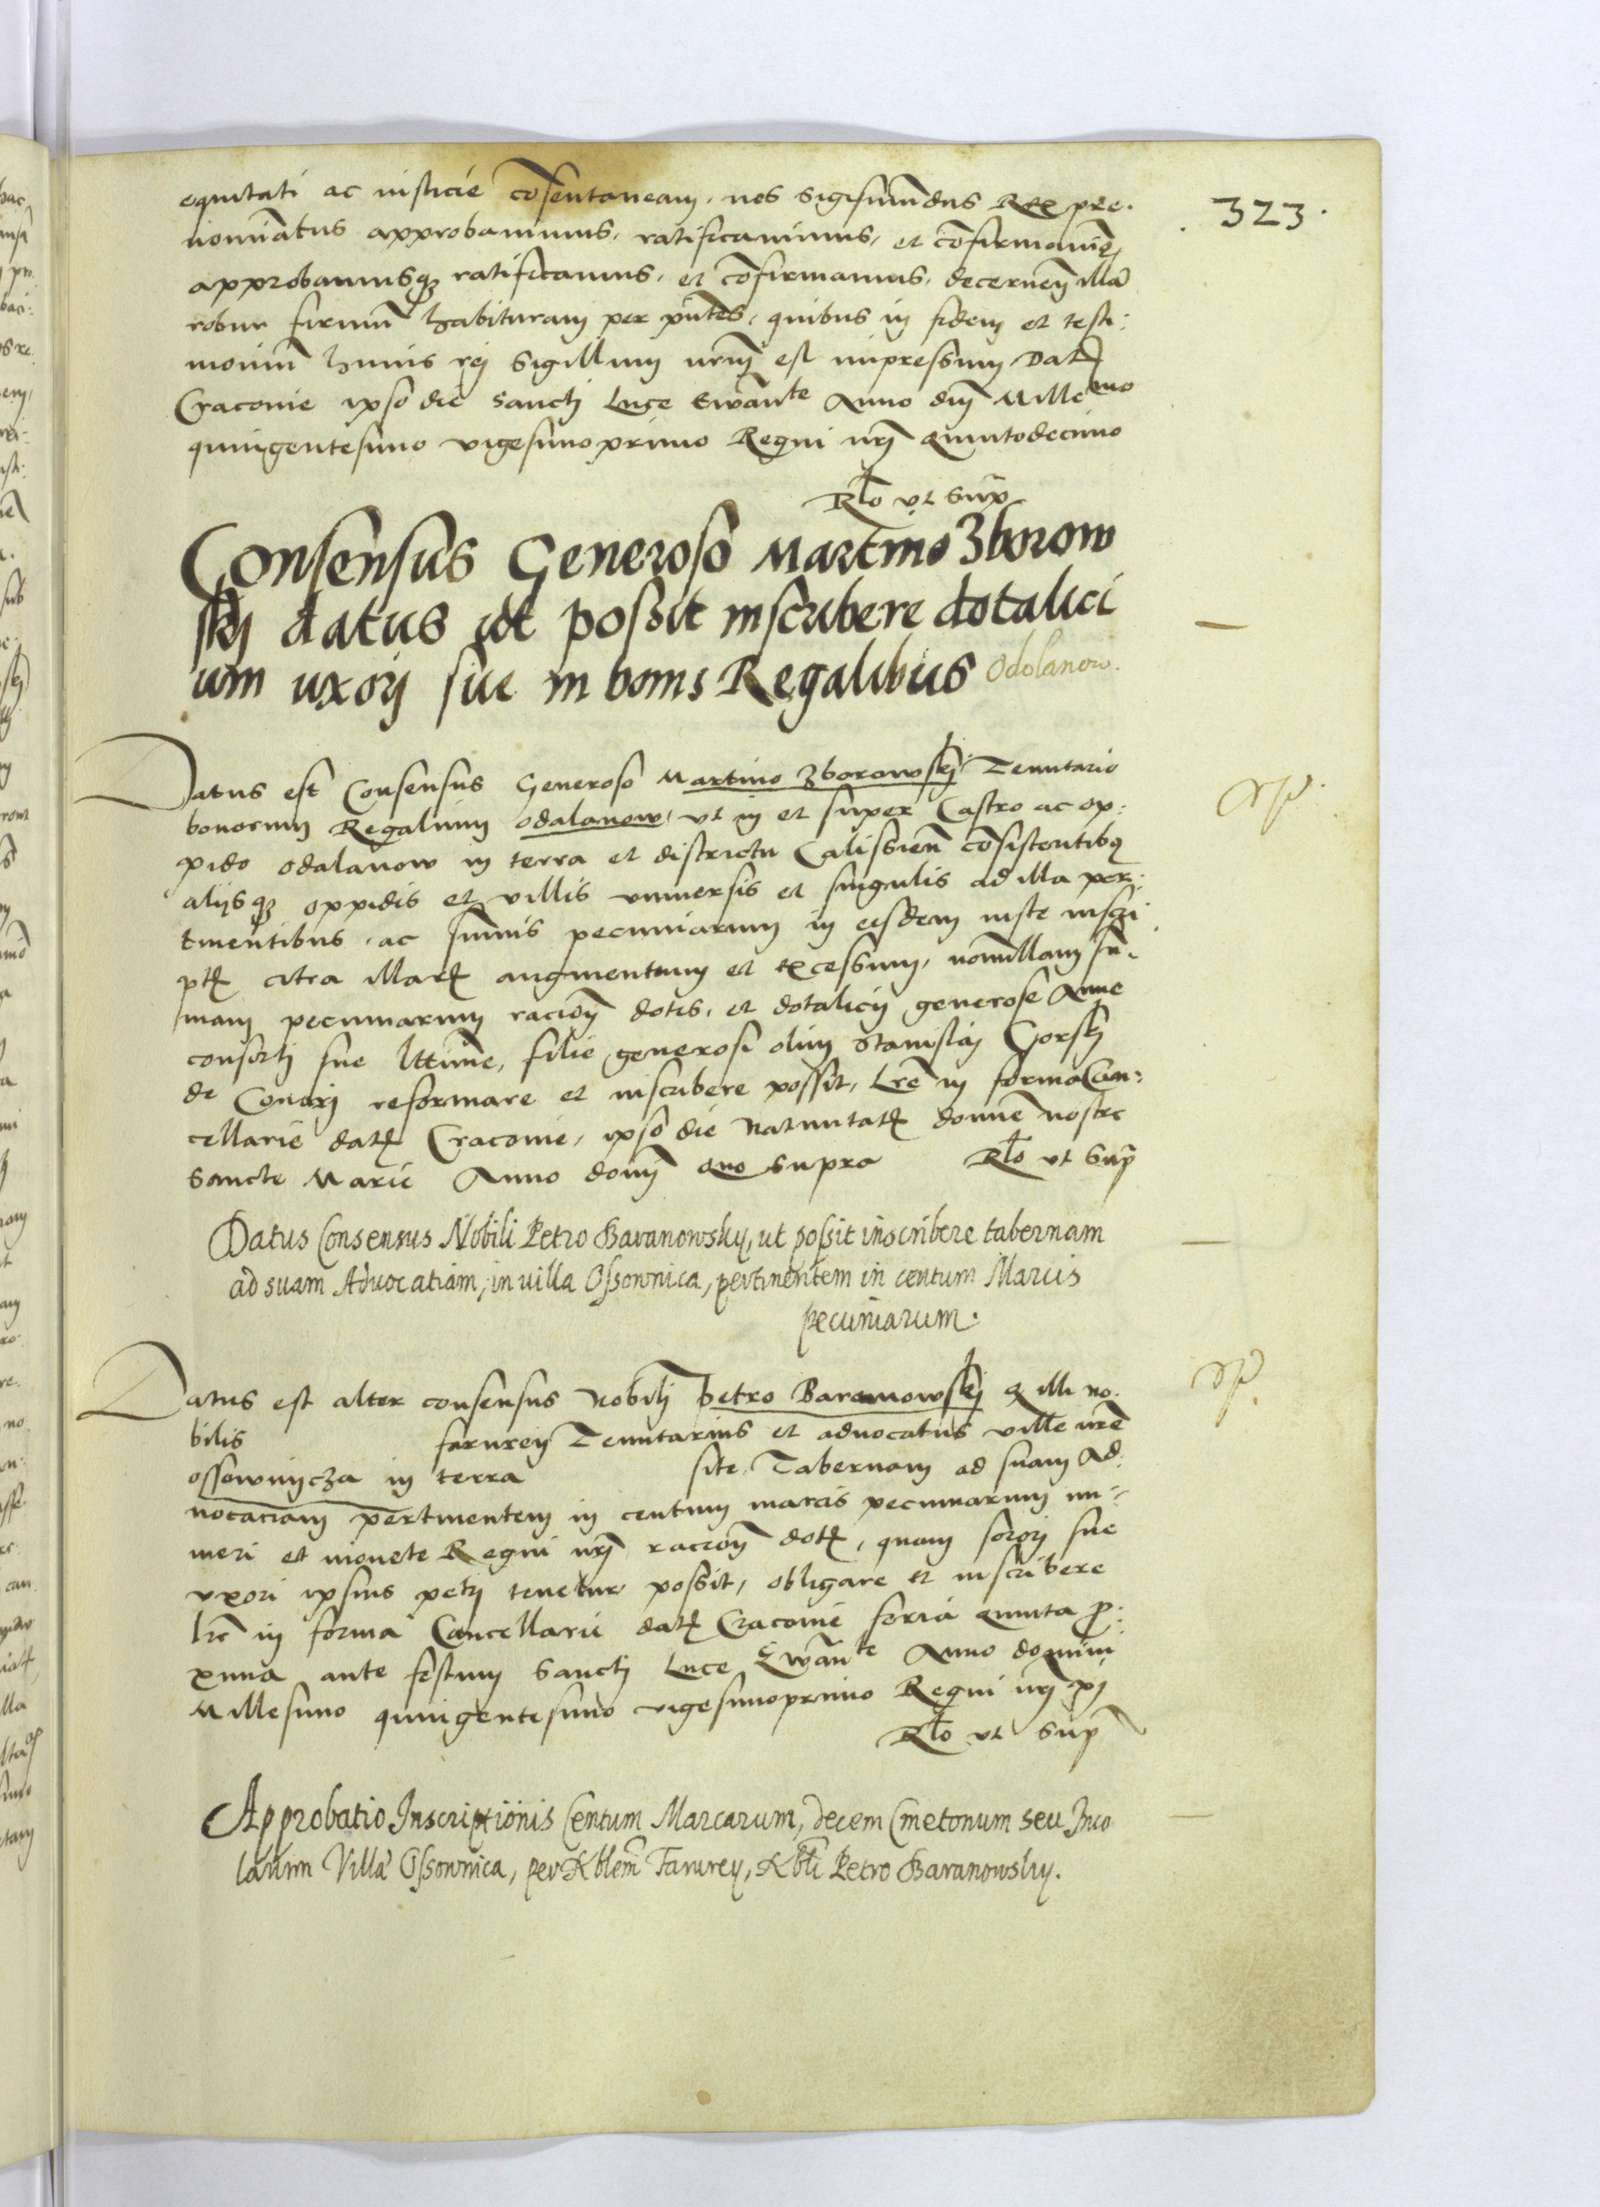 323.
equitati ac iusticie cōsentaneam, nos Sigismūdus Rex pre.
nominatus approbavimus, ratificavimus, et cōfirmavimꝰ
approbamusqꝫ ratificamus, et cōfirmamus, decernen̄ illā
robur firmū habituram per pn̄tes, quibus in fidem et testi:
moniū huius rei Sigillum nr̄m est impressum Dat̄
Cracovie ipso die Sancti Luce Ewāⁿte Anno dn̄i Millemo
quingentesimo vigesimoprimo Regni nr̄i quintodecimo
Rl̄o ut Sup̄
Consensus Generoso Martino Zborow
skij datus ut possit inscribere dotalici
um uxori sue in bonis Regalibus Odolanow.
Datus est Consensus Generoso Martino Zborowskij Tenutario
bonorum Regalium Odalanow, ut in et super Castro ac op:
pido Odalanow in terra et districtu Calissien̄ cōsistentibꝰ
alijsqꝫ oppidis et villis universis et singulis ad illa per:
tinentibus, ac sum̄is pecuniarum in eisdem iuste inscri:
ptꝭ citra illarꝭ augmentum et excessum, nonnullam sū:
mam pecuniarum racion̄ dotis, et dotalicij generose Anne
consorti sue l̄ttime, filie generosi olim Stanislai Gorskj
de Conarj reformare et inscribere possit, Lr̄e in forma Can:
cellarie datꝭ Cracovie, ipso die Nativitatꝭ domine nostre
Sancte Marie Anno domi quo supra Rl̄o ut Sup̄
Datus Consensus Nobili Petro Baranowsky, ut possit inscribere tabernam
ad suam Advocatiam, in villa Ossownica, pertinentem in centum Marcis
pecuniarum.
Datus est alter consensus Nobili Petro Baranowskij q̄ illi no.
bilis farurej Tenutarius et advocatus ville nr̄e
ossownijcza in terra site, Tabernam ad suam Ad:
vocaciam pertinentem in centum marcis pecuniarum nu:
meri et monete Regni nr̄i racion̄ dotꝭ, quam sorori sue
uxori ipsius petri tenetur possit, obligare et inscribere
lr̄e in forma Cancellarie datꝭ Cracovie feria quinta ꝓ:
xima ante festum Sancti Luce Ewāⁿte Anno domini
Millesimo quingentesimo vigesimoprimo Regni nr̄i xv
Rl̄o ut Sup̄
Approbatio Inscriptionis Centum Marcarum, decem Cmetonum seu Inco
larum Villæ Ossownica, per Nblem̄ Farurey, Nbl̄i Petro Baranowsky.